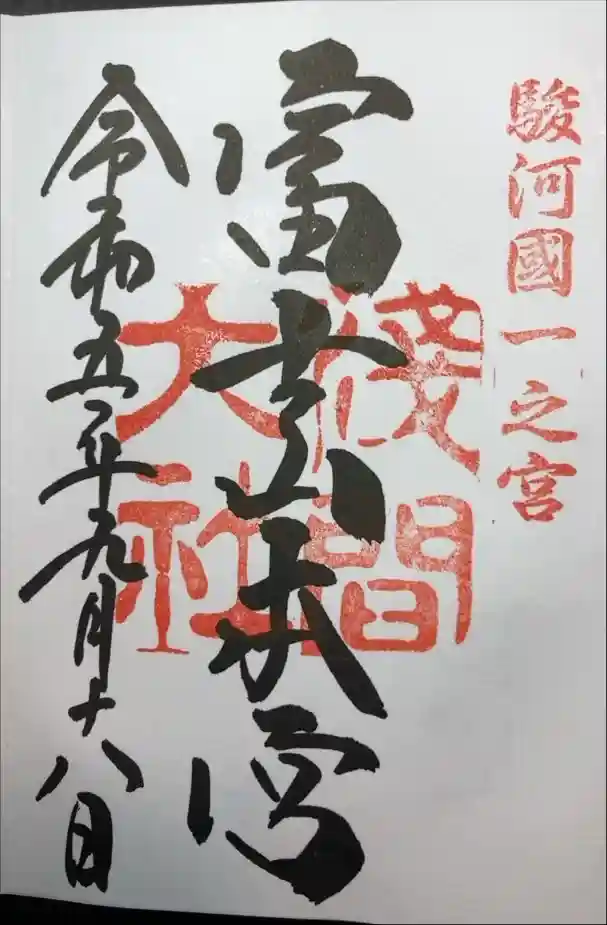 駿河國一之宮
富士山本宮
淺間
大社
令和五年九月十八日